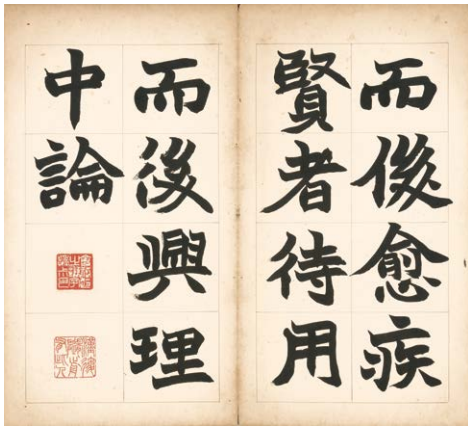 而後愈疾
賢者待用
而後興理
中論